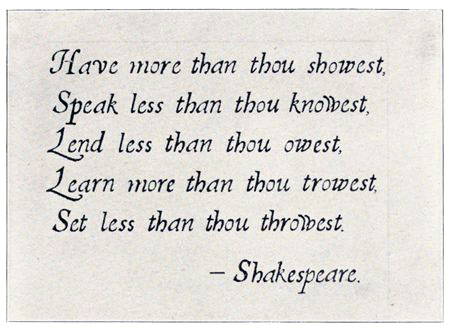 Have more than thou showest,
Speak less than thou knowest,
Lend less than thou owest,
Learn more than thou trowest,
Set less than thou throwest.
– Shakespeare.